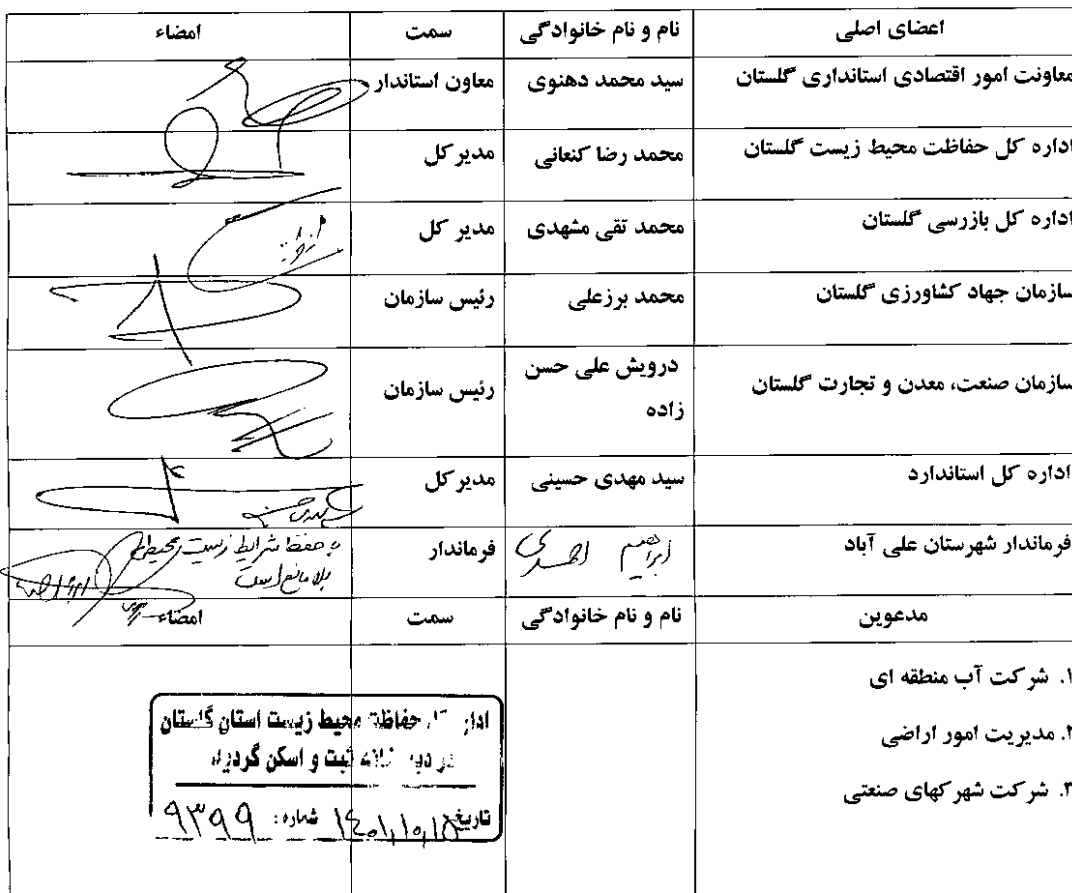 اعضای اصلی نام و نام خانوادگی سمت امضاء
معاونت امور اقتصادی استانداری گلستان سید محمد دهنوی معاون استاندار
اداره کل حفاظت محیط زیست گلستان محمد رضا کنعانی مدیر کل
اداره کل بازرسی گلستان محمد تقی مشهدی مدیر کل
سازمان جهاد کشاورزی گلستان محمد برزعلی رئیس سازمان
سازمان صنعت، معدن و تجارت گلستان درویش علی حسن رئیس سازمان
زاده
اداره کل استاندارد سید مهدی حسینی مدیر کل
فرماندار شهرستان علی آباد ابراهیم احمدی فرماندار با حفظ شرایط زیست محیطی
بلامانع است
مدعوین نام و نام خانوادگی سمت امضاء
۱. شرکت آب منطقه ای
۲. مدیریت امور اراضی
۳. شرکت شهرکهای صنعتی
حفاظت محیط زیست استان گلستان
ثبت و اسکن گردید
تاریخ ۱۴۰۱,۱۰,۱۵ شماره: ۹۳۹۹